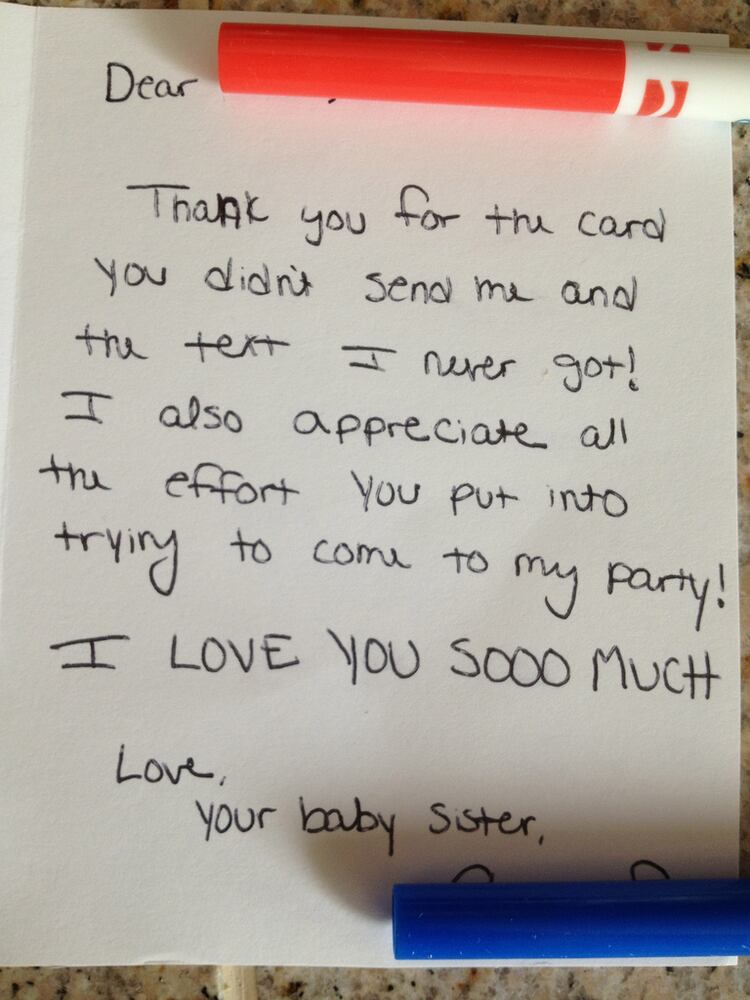 Dear
Thank you for the card
you didn't send me and
the text I never got!
I also appreciate all
the effort you put into
trying to come to my party!
I LOVE YOU SOOO MUCH
Love,
your baby sister,